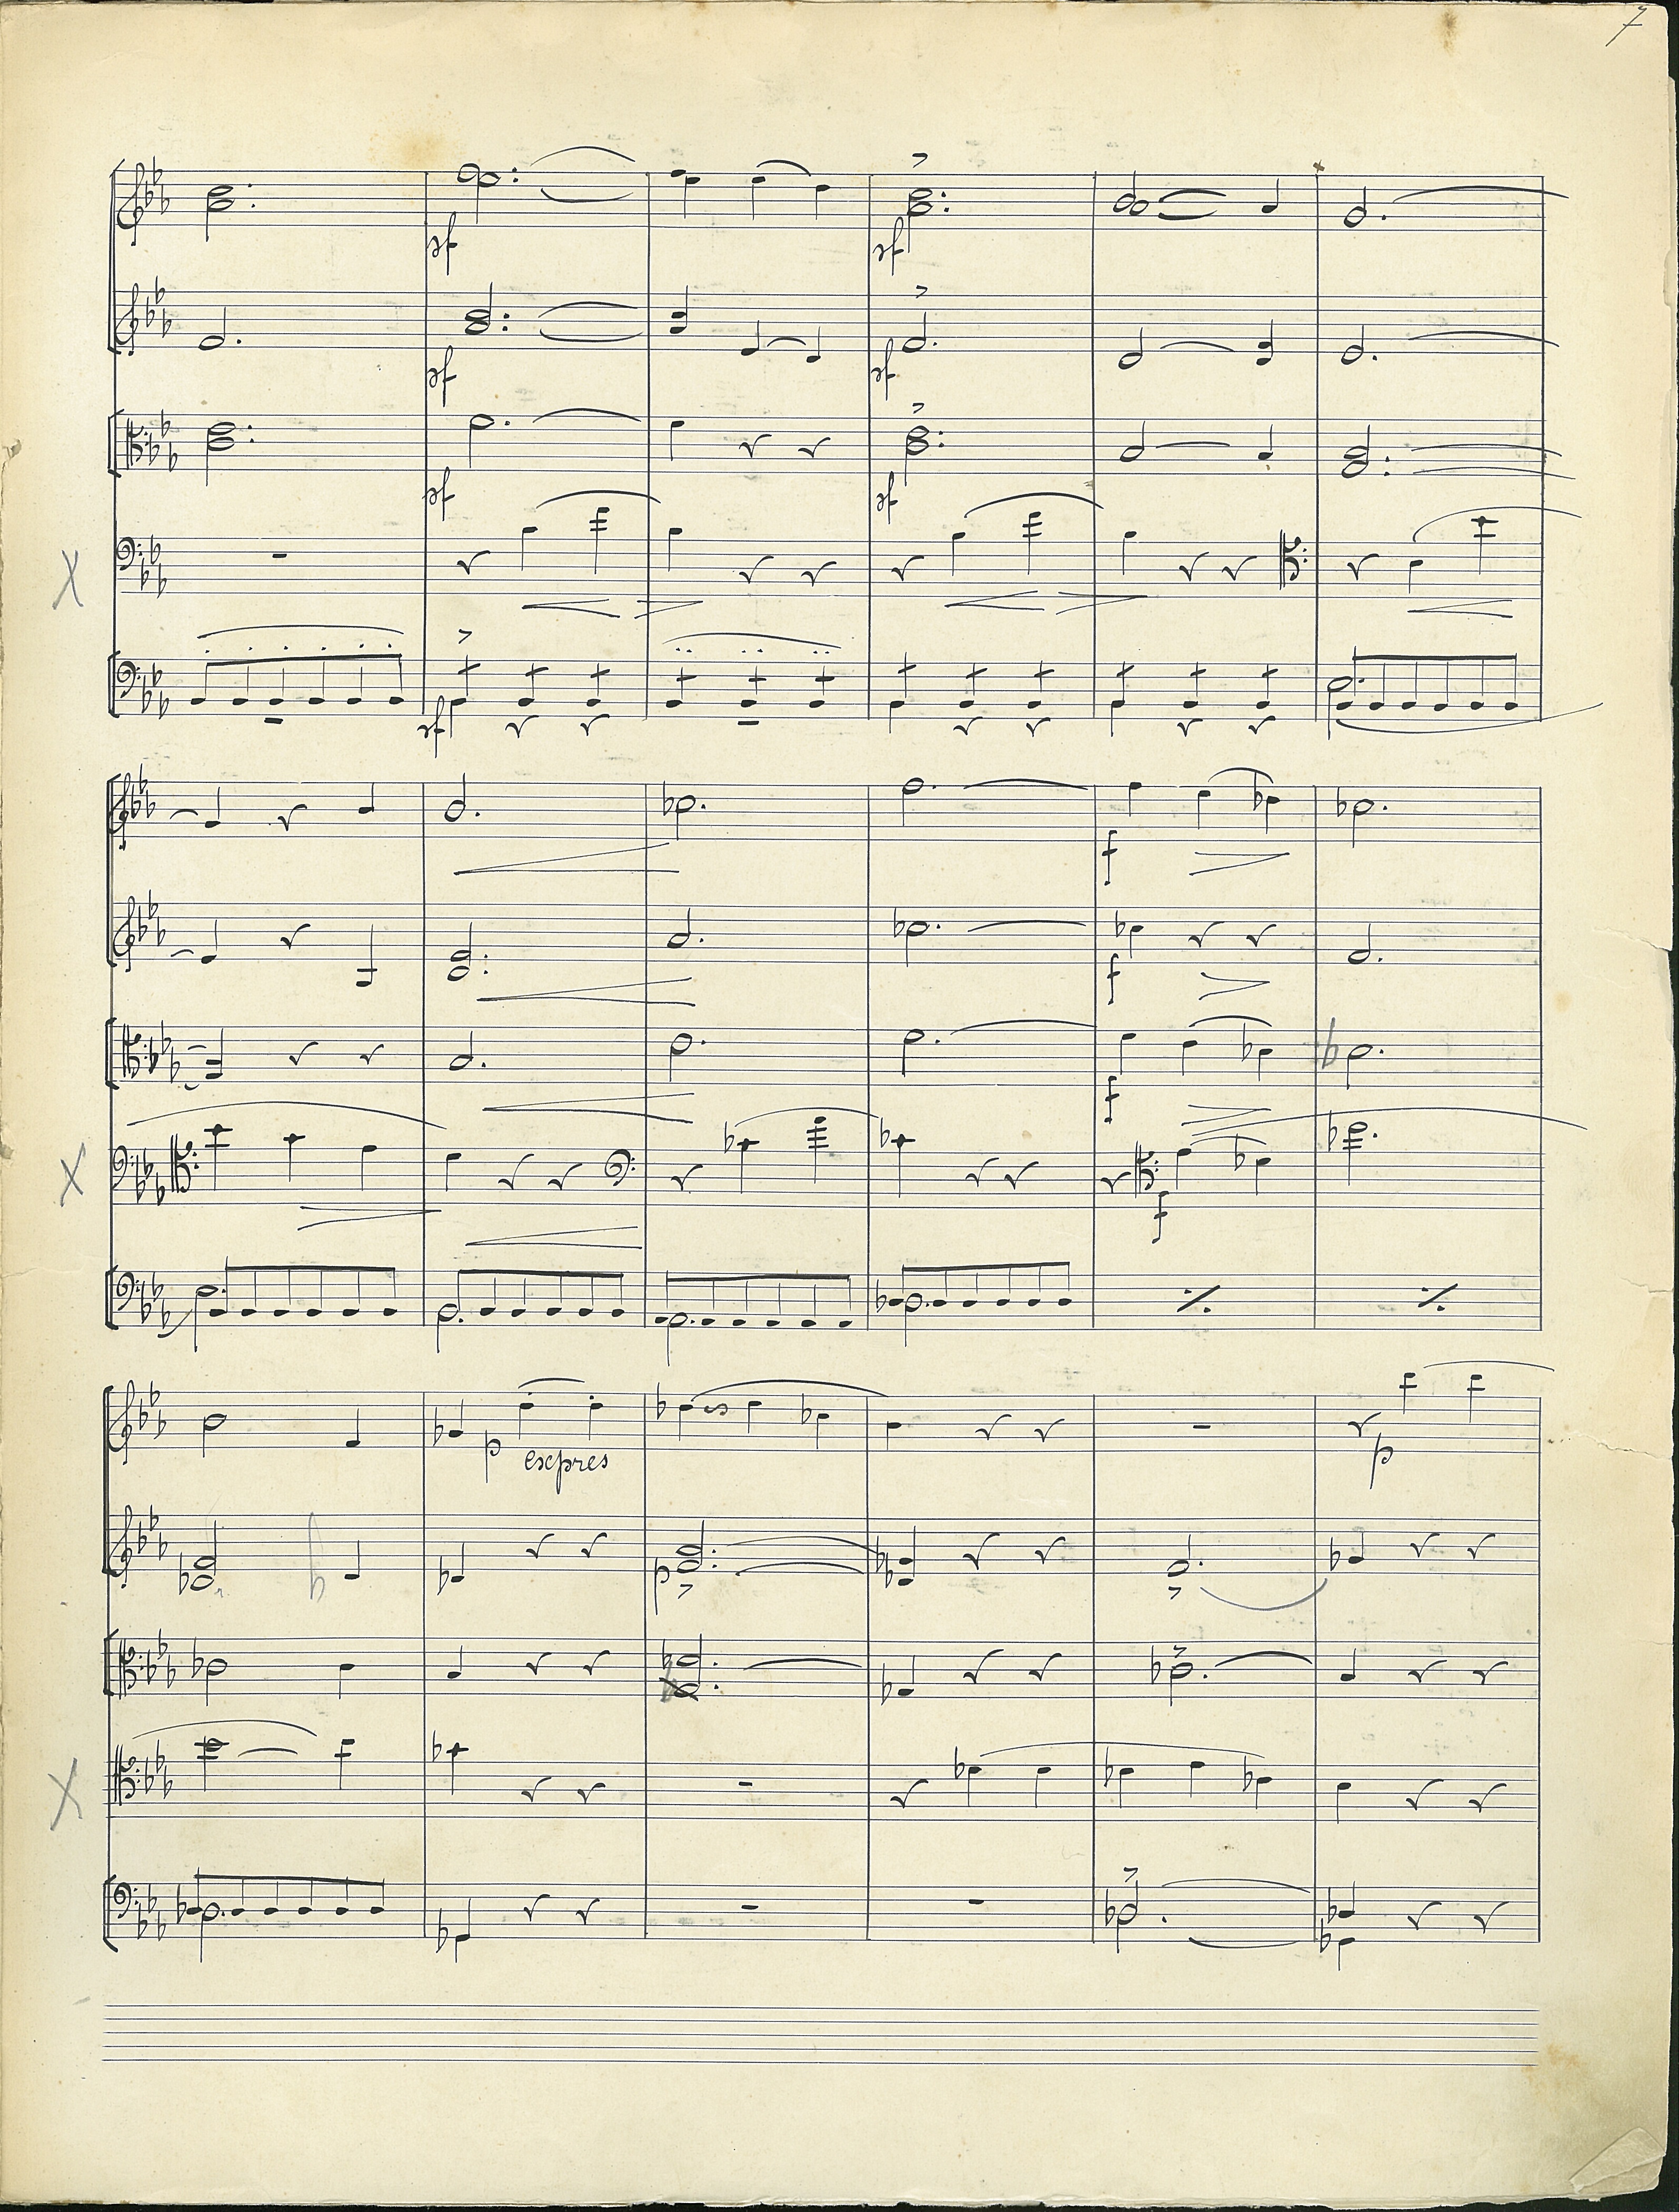 7
sf sf
sf sf
sf sf
sf
f
f
f
f
p expres p
p